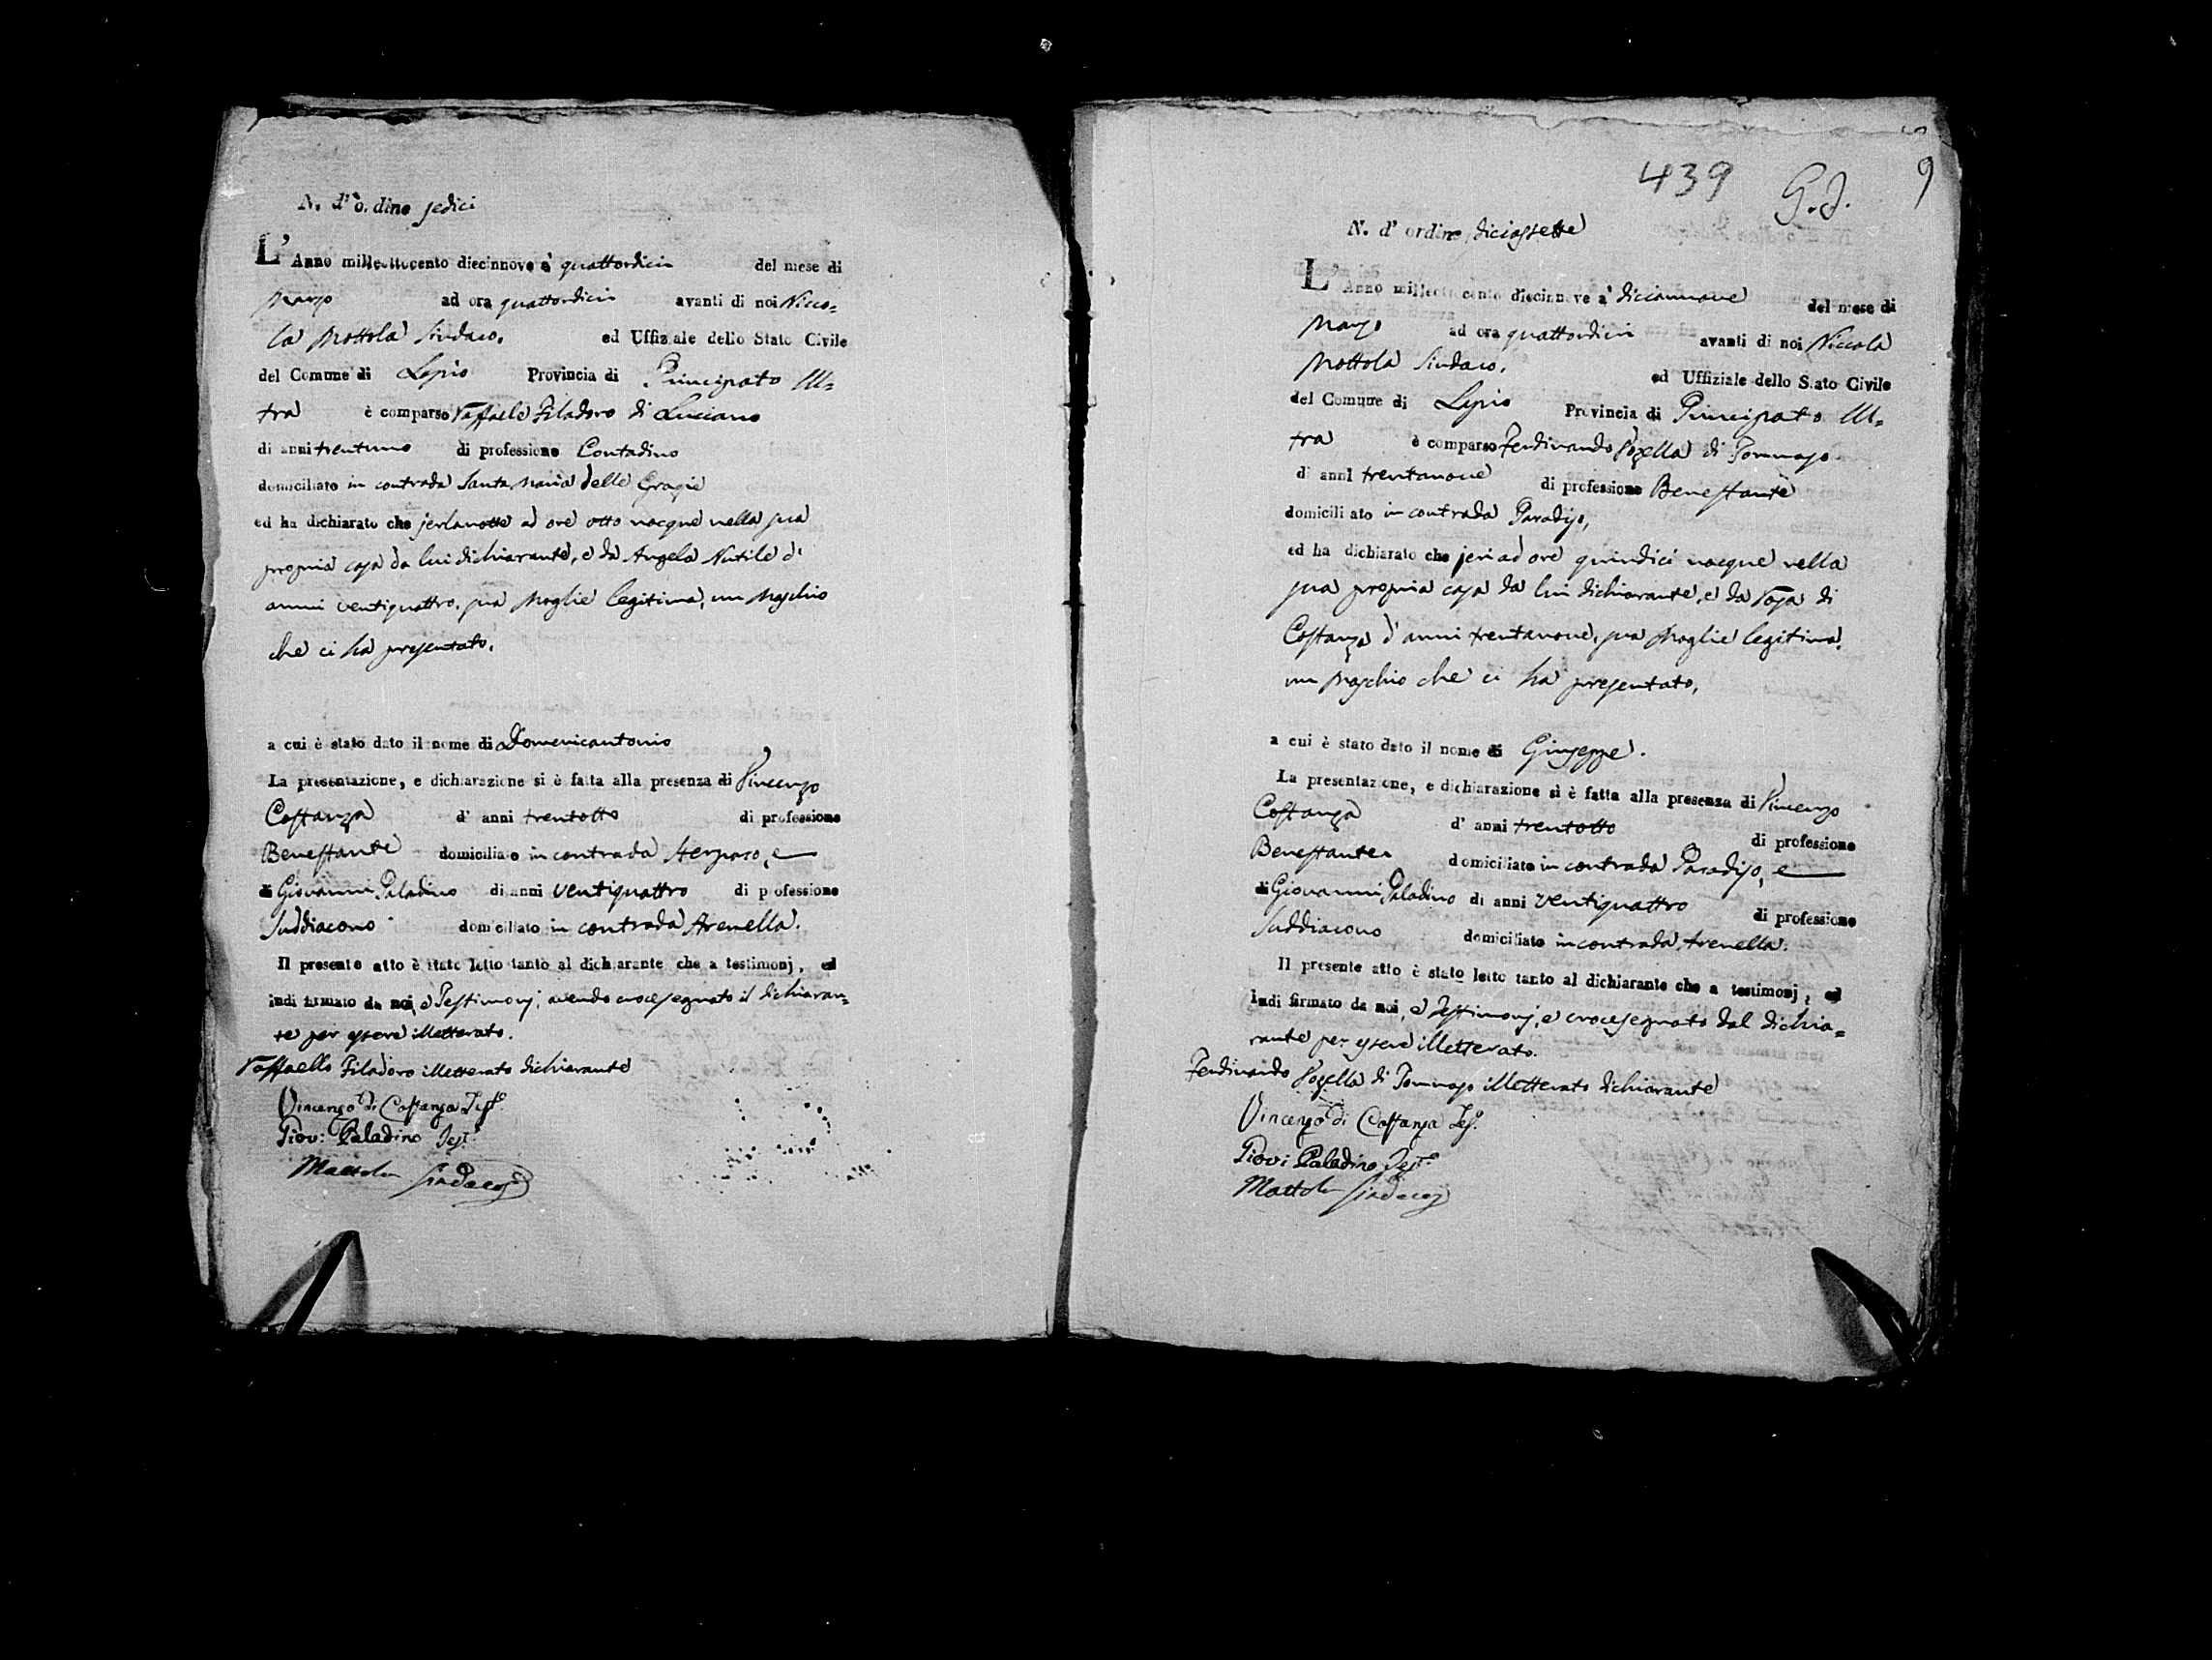 N. d'ordine sedici
L'Anno milleottocento diecinnove a' quattordici del mese di
Marzo ad ora quattordici avanti di noi Nicco=
la Mottola Sindaco, ed Uffiziale dello Stato Civile
del Comune di Lapio Provincia di Principato Ul=
tra è comparso Raffaele Filadoro di Luciano
di anni trentuno di professione Contadino
domiciliato in contrada Santa Maria delle Grazie
ed ha dichiarato che jerlanotte ad ore otto nacque nella sua
propria casa da lui dichiarante, e da Angela Nutile d'
anni ventiquattro, sua Moglie legitima, un Maschio
che ci ha presentato,
a cui è stato dato il nome di Domenicantonio
La presentazione, e dichiarazione si è fatta alla presenza di Vincenzo
Costanza d' anni trentotto di professione
Benestante domiciliato in contrada, e
di Giovanni Paladino di anni ventiquattro di professione
Suddiacono domiciliato in contrada Arenella.
Il presente atto è stato letto tanto al dichiarante che a testimonj, ed
indi firmato da noi, e Testimonj, avendo crocesegnato il dichiaran=
te per essere illetterato.
Raffaello Filadoro illetterato dichiarante
Vincenzo di Costanza Test.o
Giov: Paladino Test.o
Mottola Sindaco
439 G.J. 9
N. d' ordine diciassette
L'Anno milleottocento diecinnove a' diciannove del mese di
Marzo ad ora quattordici avanti di noi Niccola
Mottola Sindaco, ed Uffiziale dello Stato Civile
del Comune di Lapio Provincia di Principato Ul=
tra è comparso Ferdinando di Tommaso
di anni trentanove di professione Benestante
domiciliato in contrada Paradiso,
ed ha dichiarato che jeri ad ore quindici nacque nella
sua propria casa da lui dichiarante, e da Rosa di
Costanza d' anni trentanove, sua Moglie legitima,
un Maschio che ci ha presentato,
a cui è stato dato il nome di Giuseppe.
La presentazione, e dichiarazione si è fatta alla presenza di Vincenzo
Costanza d' anni trentotto di professione
Benestante domiciliato in contrada Paradiso, e
di Giovanni Paladino di anni ventiquattro di professione
Suddiacono domiciliato in contrada Arenella.
Il presente atto è stato letto tanto al dichiarante che a testimonj, ed
indi firmato da noi, e Testimonj, e crocesegnato dal dichia=
rante per essere illetterato.
Ferdinando di Tommaso illetterato dichiarante
Vincenzo di Costanza Tes.o
Giov: Paladino Test.o
Mottola Sindaco